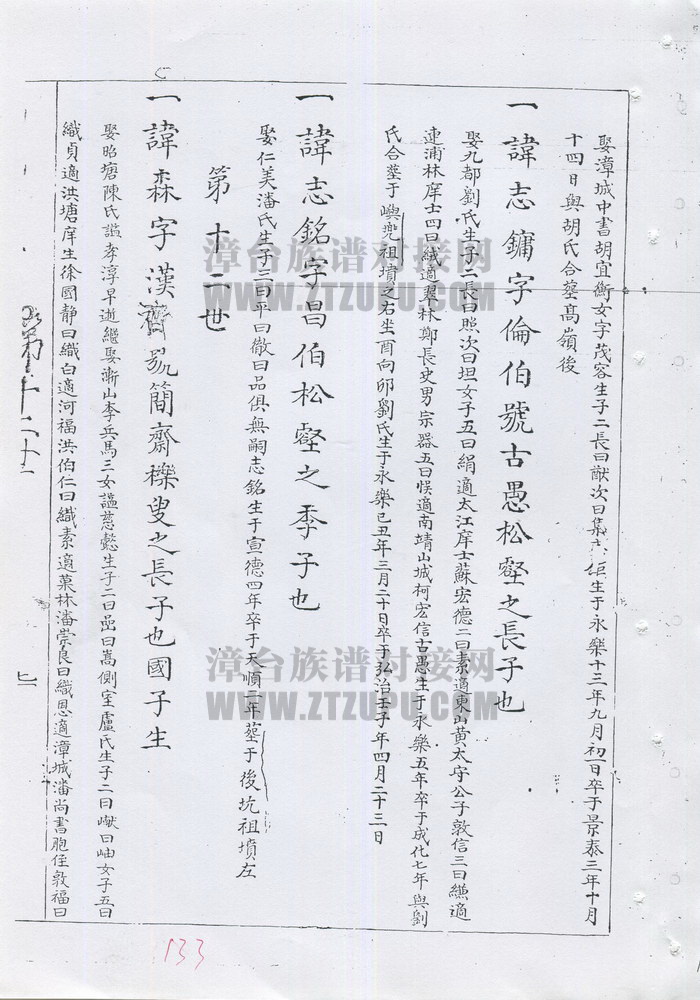 娶漳城中書胡宜衡女字茂容生子二長曰猷次曰集生于永樂十三年九月初一日卒于景泰三年十月
十四日與胡氏合塟高嶺後
一諱志鏞字倫伯號古愚松壑之長子也
娶九都劉氏生子二長曰照次曰坦女子五曰絹適太江庠士蘇宏德二曰素適東山黃太守公子敦信三曰縑適
連浦林庠士四曰絨適翠林鄭長史男宗器五曰悮適南靖山城柯宏信古愚生于永樂五年卒于成化七年與劉
氏合塟于嶼兜祖墳之右坐酉向卯劉氏生于永樂己丑年三月二十日卒于弘治壬子年四月二十三日
一諱志銘字昌伯松壑之季子也
娶仁美潘氏生子三曰平曰敞曰品俱無嗣志銘生于宣德四年卒于天順二年塟于後坑祖墳左
第十二世
一諱森字漢齊號簡齋櫟叟之長子也國子生
娶昭塘陳氏謚孝淳早逝繼娶漸山李兵馬三女謚慈懿生子二曰嵒曰嵩側室盧氏生子二曰巘曰岫女子五曰
織貞適洪塘庠生徐國靜曰織白適河福洪伯仁曰織素適菓林潘崇良曰織恩適漳城潘尚書胞侄敦福曰
第十二世
七
133
漳台族谱对接网
WWW.ZTZUPU.COM
漳台族谱对接网
WWW.ZTZUPU.COM